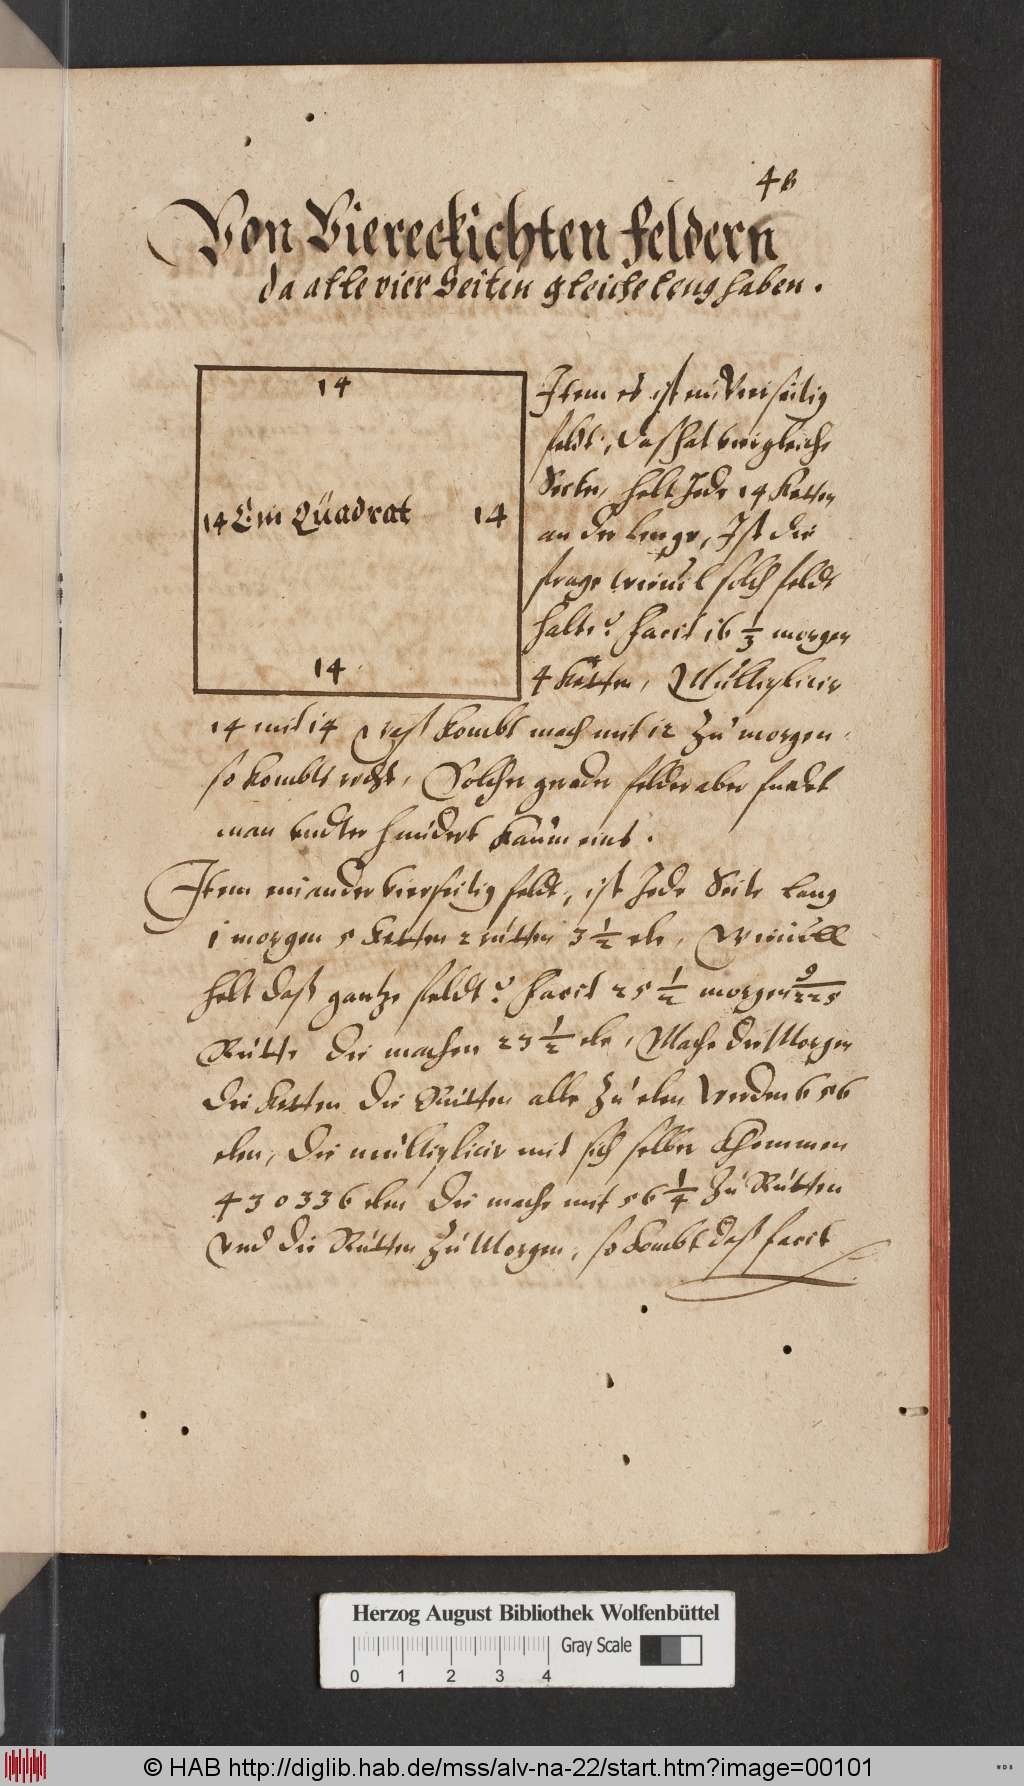 48
Von Viereckichten feldern
da alle vier Seiten gleiche leng haben.
14
14 Ein Quadrat 14
14
Item es ist ein Vierseitig
feldt, das hat vier gleiche
Seiten, helt Jede 14 Ketten
an der lenge, Ist die
frage wieuil solch feldt
halte? Facit 16 1/3 morgen
4 Ketten, Multiplicir
14 mit 14 waß kombt mach mit 12 zu morgen
so kombts recht, Solcher gerader felder aber findet
man vndter hundert kaum eins.
Item ein ander vierseitig feldt, ist Jede Seite lang
1 morgen 5 Ketten 2 rutten 3 1/2 ele, Wieuill
helt daß gantze feldt? Facit 25 1/2 morgen 9/225
Rutte die machen 23 1/2 ele, Mache die Morgen
die Ketten die Rutten alle zu elen werden 656
elen, die multiplicir mit sich selber khommen
430336 elen die mache mit 56 1/4 zu Rutten
vnd die Rutten zu Morgen, so kombt daß facit
Herzog August Bibliothek Wolfenbüttel
Gray Scale
0 1 2 3 4
© HAB http://diglib.hab.de/mss/alv-na-22/start.htm?image=00101